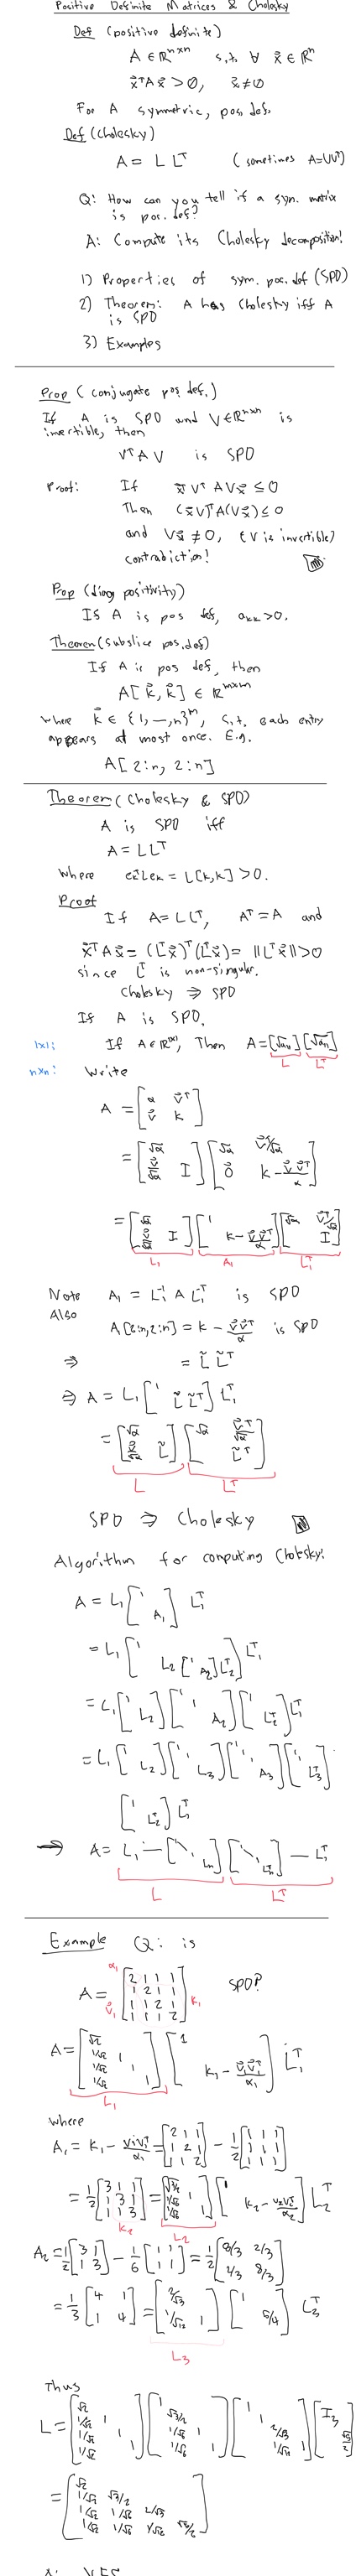 Positive Definite Matrices & Cholesky
Def (positive definite)
A ∈ ℝ^{n×n} s.t. ∀ x⃗ ∈ ℝ^n
x⃗^T A x⃗ > 0, x⃗ ≠ 0
For A symmetric, pos. def.
Def (Cholesky)
A = L L^T (sometimes A=UU^T)
Q: How can you tell if a sym. matrix
is pos. def?
A: Compute its Cholesky decomposition!
1) Properties of sym. pos. def (SPD)
2) Theorem: A has Cholesky iff A
is SPD
3) Examples
Prop (conjugate pos. def.)
If A is SPD and V ∈ ℝ^{n×n} is
invertible, then
V^T A V is SPD
Proof: If x⃗ V^T A V x⃗ ≤ 0
Then (x⃗V)^T A(Vx⃗) ≤ 0
and Vx⃗ ≠ 0, (V is invertible)
contradiction!
Prop (diag positivity)
If A is pos def, a_{kk} > 0.
Theorem (subslice pos. def)
If A is pos def, then
A[k⃗, k⃗] ∈ ℝ^{m×m}
where k⃗ ∈ {1, —, n}^m, s.t. each entry
appears at most once. E.g.
A[2:n, 2:n]
Theorem (Cholesky & SPD)
A is SPD iff
A = L L^T
where e_k^T L e_k = L[k,k] > 0.
Proof
If A = L L^T, A^T = A and
x⃗^T A x⃗ = (L^T x⃗)^T (L^T x⃗) = ||L^T x⃗|| > 0
since L^T is non-singular.
Cholesky ⇒ SPD
If A is SPD,
1x1: If A ∈ ℝ^{1x1}, Then A = [√a₁₁] [√a₁₁]
L L^T
nxn: Write
A = [α v⃗^T; v⃗ K]
= [√α; v⃗/√α I] [√α v⃗^T/√α; 0⃗ K - v⃗v⃗^T/α]
= [√α; v⃗/√α I] [1; K - v⃗v⃗^T/α] [√α v⃗^T/√α; I]
L₁ A₁ L₁^T
Note A₁ = L₁^{-1} A L₁^{-T} is SPD
Also
A[2:n, 2:n] = K - v⃗v⃗^T/α is SPD
⇒ = L̃ L̃^T
⇒ A = L₁ [1; L̃ L̃^T] L₁^T
= [√α; v⃗/√α L̃] [√α v⃗^T/√α; L̃^T]
L L^T
SPD ⇒ Cholesky
Algorithm for computing Cholesky:
A = L₁ [1; A₁] L₁^T
= L₁ [1; L₂ [1; A₂] L₂^T] L₁^T
= L₁ [1; L₂] [1; 1; A₂] [1; L₂^T] L₁^T
= L₁ [1; L₂] [1; 1; L₃] [1; 1; A₃] [1; 1; L₃^T]
[1; L₂^T] L₁^T
→ A = L₁ — [1; ⋱; L_n] [1; ⋱; L_n^T] — L₁^T
L L^T
Example Q: is
A = [2 1 1 1; 1 2 1 1; 1 1 2 1; 1 1 1 2] SPD?
α₁
v⃗₁ K₁
A = [√2; 1/√2 1; 1/√2 1; 1/√2 1] [1; K₁ - v⃗₁v⃗₁^T/α₁] L₁^T
L₁
where
A₁ = K₁ - v₁v₁^T/α₁ = [2 1 1; 1 2 1; 1 1 2] - 1/2 [1 1 1; 1 1 1; 1 1 1]
= 1/2 [3 1 1; 1 3 1; 1 1 3] = [√3/2; 1/√6 1; 1/√6 1] [1; K₂ - v₂v₂^T/α₂] L₂^T
K₂ L₂
A₂ = 1/2 [3 1; 1 3] - 1/6 [1 1; 1 1] = 1/2 [8/3 2/3; 2/3 8/3]
= 1/3 [4 1; 1 4] = [2/√3; 1/√12 1] [1; 5/4] L₃^T
L₃
Thus
L = [√2; 1/√2 1; 1/√2 1; 1/√2 1] [1; √3/2; 1/√6 1; 1/√6 1] [1; 1; 2/√3; 1/√12 1] [I₃; √5/2]
= [√2; 1/√2 √3/2; 1/√2 1/√6 2/√3; 1/√2 1/√6 1/√12 √5/2]